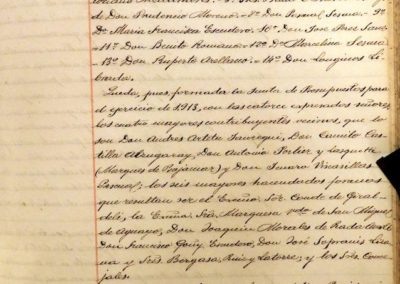 de Don Prudencio Moreno = 8º Don Manuel Sesma = 9º
Dª Maria Francisca Escudero, 10º, Don José Saez San=
= 11º Don Benito Romano = 12º Dº Marcelino Sesma
= 13º Don Ruperto Arellano = 14º Don Longinos Li
barda.
Queda, pues, formada la Junta de Repuestos para
el ejercicio de 1913, con los catorce expresados señores,
los cuatro mayores contribuyentes vecinos, que lo
son Don Andres Arteta Jauregui, Don Camilo Cas
tilla Alzugaray, Don Antonio Porlier y Lasquetti
(Marques de Bajamar) y Don Genaro Vinsillas
; los seis mayores hacendados forasteros
que resultan ser el Excmo. Sor. Conde de Giral=
deli, la Excma. Sra. Marquesa vda de San Miguel
de Aguayo, Don Joaquin Morales de Rada
Don Francisco Goñi Escudero, Don José Sopranis
na y Sres. Bergasa, Ruiz y Latorre; y los Sres. Conce
jales.